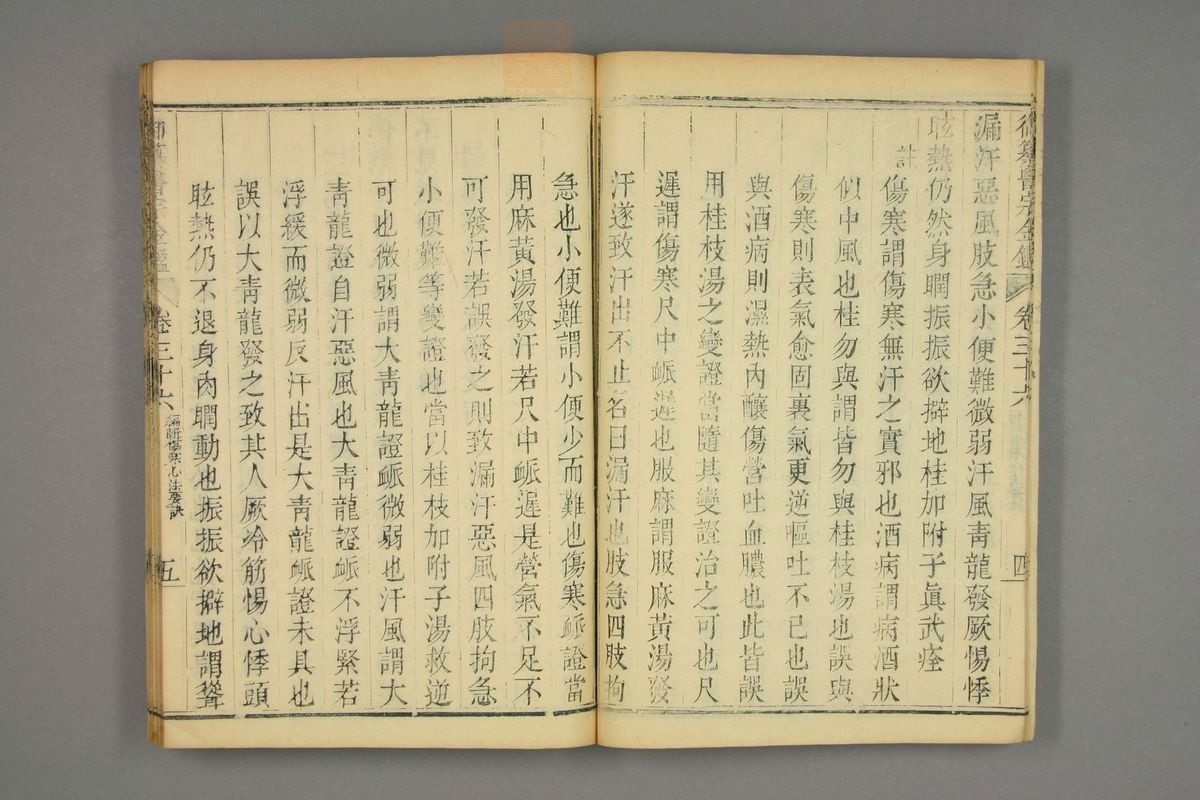 御纂醫宗金鑑 卷三十六 四
漏汗惡風肢急小便難微弱汗風靑龍發厥惕悸
眩熱仍然身瞤振振欲擗地桂加附子眞武痊
註
傷寒謂傷寒無汗之實邪也酒病謂病酒狀
似中風也桂勿與謂皆勿與桂枝湯也誤與
傷寒則表氣愈固裏氣更逆嘔吐不已也誤
與酒病則濕熱內釀傷營吐血膿也此皆誤
用桂枝湯之變證當隨其變證治之可也尺
遲謂傷寒尺中脈遲也服麻謂服麻黃湯發
汗遂致汗出不止名曰漏汗也肢急四肢拘
急也小便難謂小便少而難也傷寒脈證當
用麻黃湯發汗若尺中脈遲是營氣不足不
可發汗若誤發之則致漏汗惡風四肢拘急
小便難等變證也當以桂枝加附子湯救逆
可也微弱謂大靑龍證脈微弱也汗風謂大
靑龍證自汗惡風也大靑龍證脈不浮緊若
浮緩而微弱反汗出是大靑龍脈證未具也
誤以大靑龍發之致其人厥冷筋惕心悸頭
眩熱仍不退身肉瞤動也振振欲擗地謂聳
御纂醫宗金鑑 卷三十六 編輯傷寒心法要訣 五